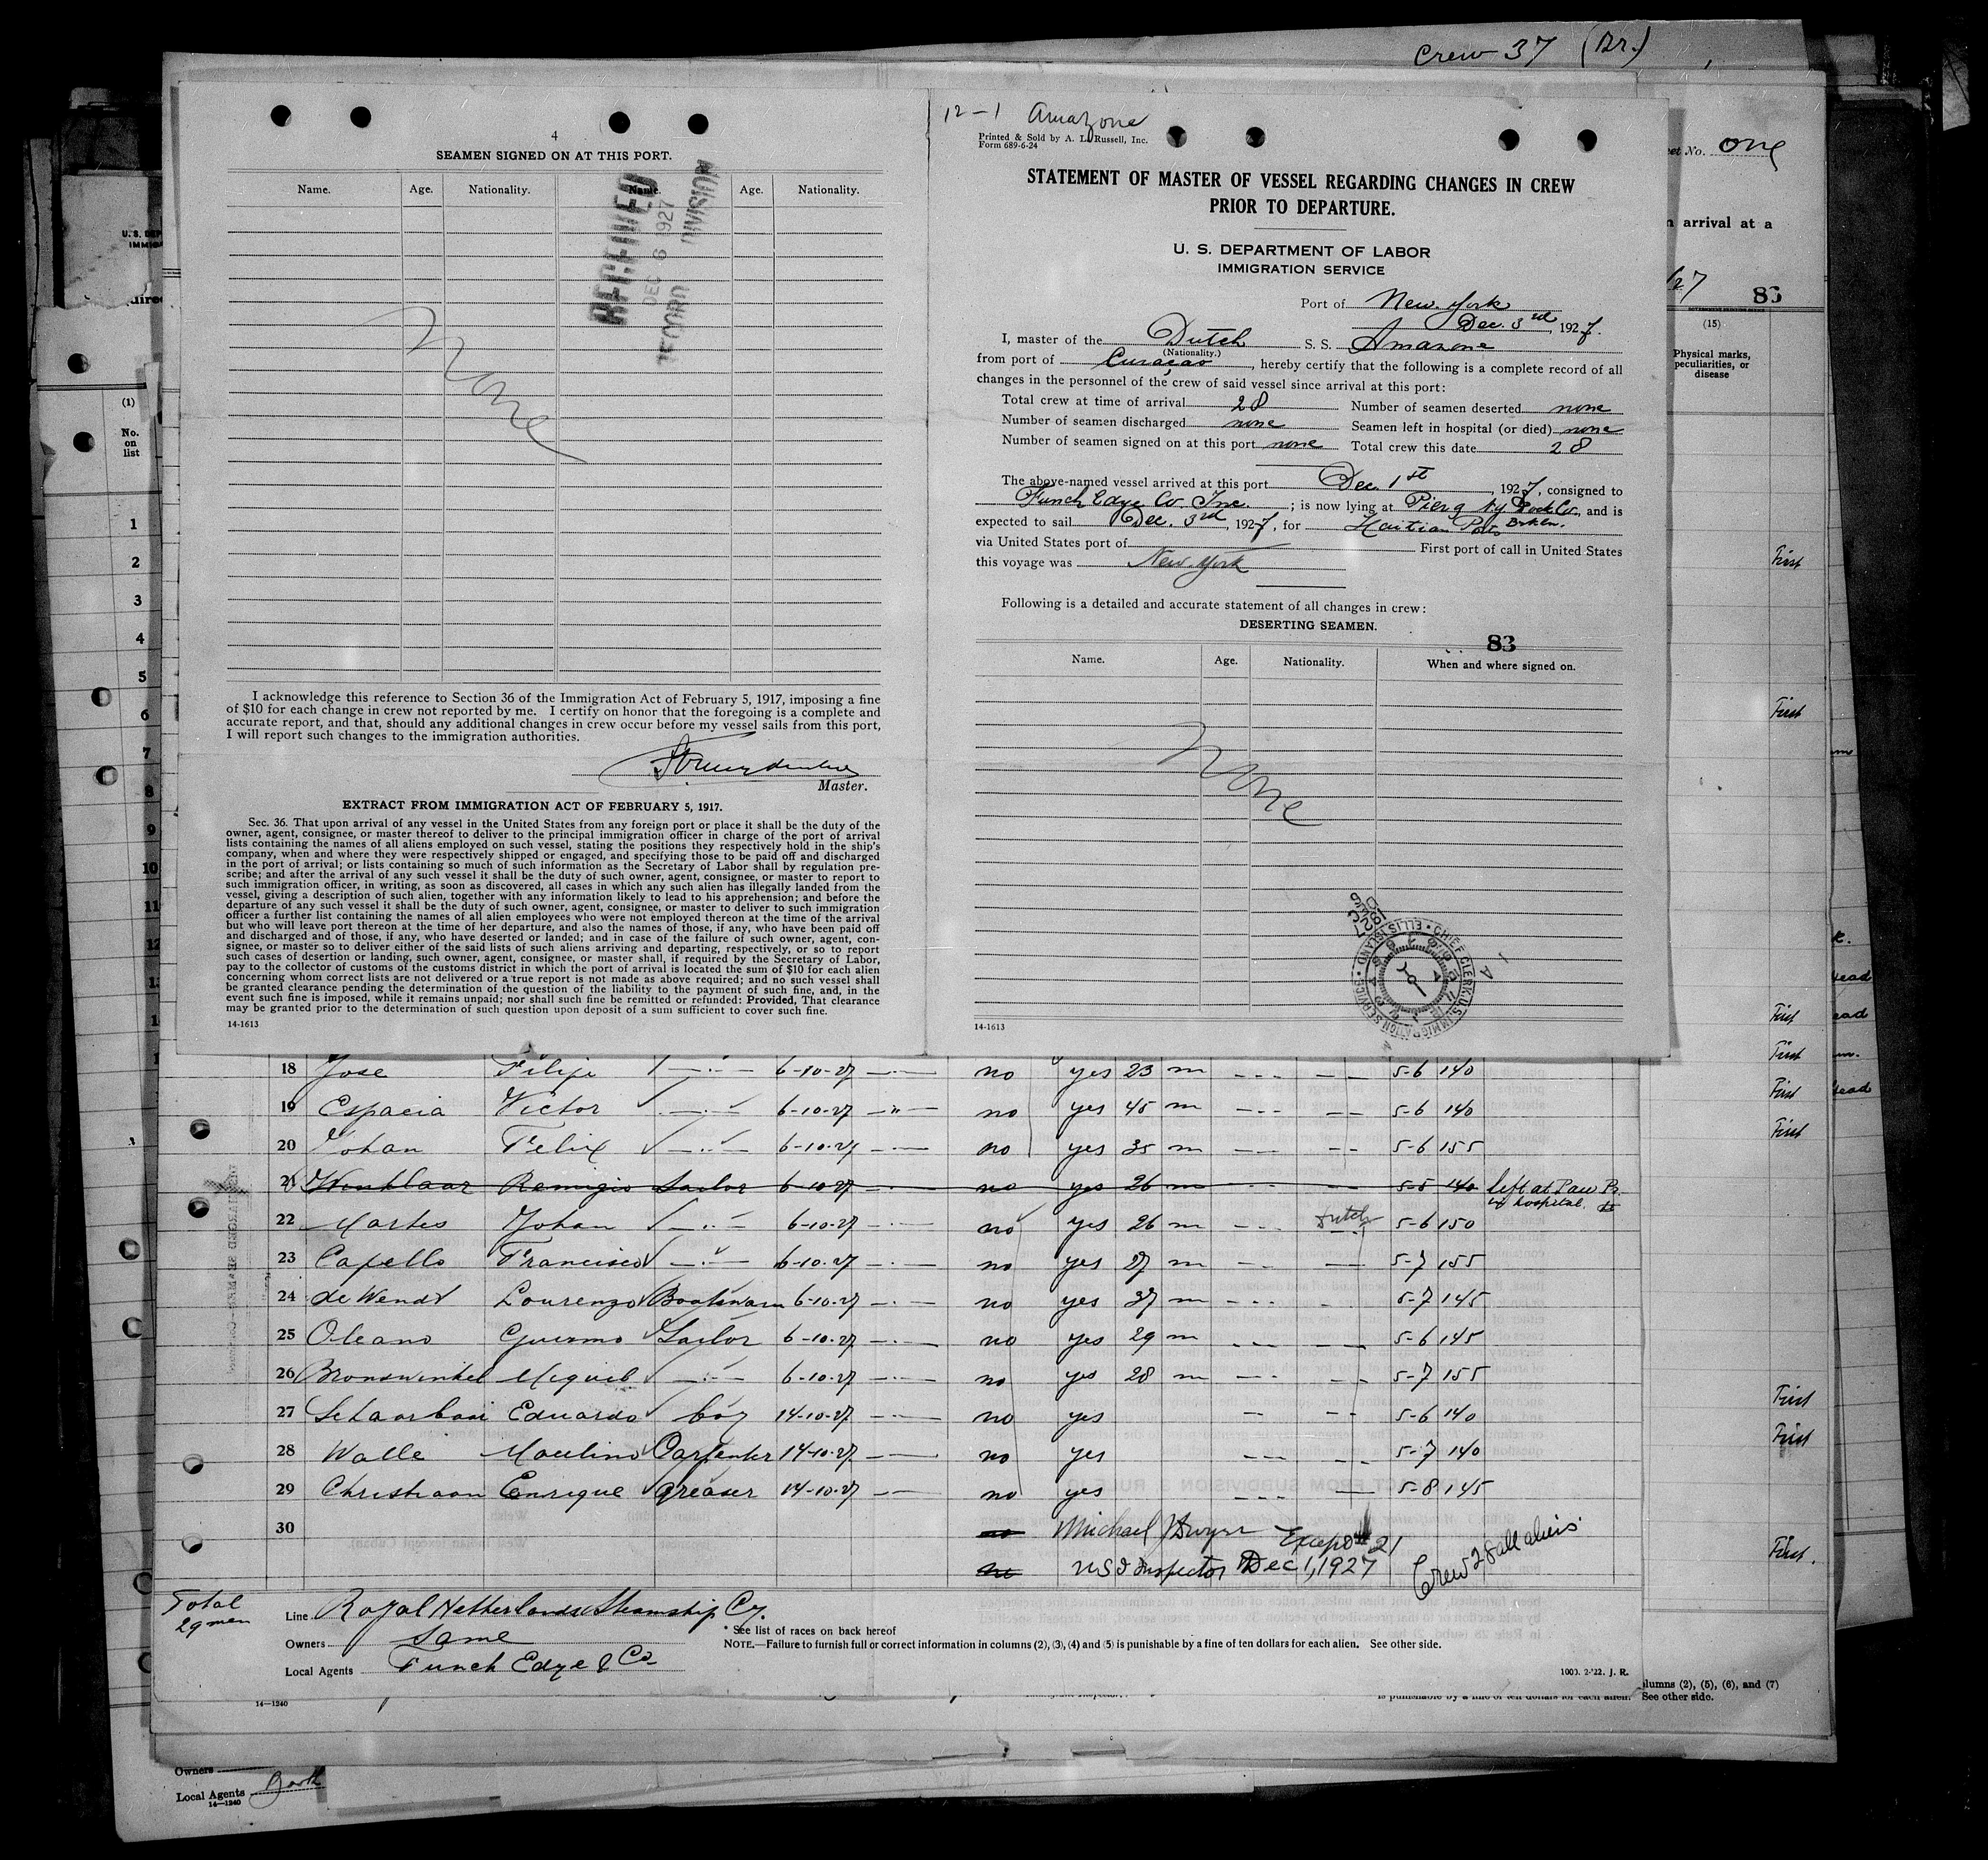 Crew 37 (Br.)
4
SEAMEN SIGNED ON AT THIS PORT.
Name. Age. Nationality. Name. Age. Nationality.
RECEIVED
DEC 6 1927
RECORD DIVISION
None
I acknowledge this reference to Section 36 of the Immigration Act of February 5, 1917, imposing a fine
of $10 for each change in crew not reported by me. I certify on honor that the foregoing is a complete and
accurate report, and that, should any additional changes in crew occur before my vessel sails from this port,
I will report such changes to the immigration authorities.
Master.
EXTRACT FROM IMMIGRATION ACT OF FEBRUARY 5, 1917.
Sec. 36. That upon arrival of any vessel in the United States from any foreign port or place it shall be the duty of the
owner, agent, consignee, or master thereof to deliver to the principal immigration officer in charge of the port of arrival
lists containing the names of all aliens employed on such vessel, stating the positions they respectively hold in the ship's
company, when and where they were respectively shipped or engaged, and specifying those to be paid off and discharged
in the port of arrival; or lists containing so much of such information as the Secretary of Labor shall by regulation pre-
scribe; and after the arrival of any such vessel it shall be the duty of such owner, agent, consignee, or master to report to
such immigration officer, in writing, as soon as discovered, all cases in which any such alien has illegally landed from the
vessel, giving a description of such alien, together with any information likely to lead to his apprehension; and before the
departure of any such vessel it shall be the duty of such owner, agent, consignee, or master to deliver to such immigration
officer a further list containing the names of all alien employees who were not employed thereon at the time of the arrival
but who will leave port thereon at the time of her departure, and also the names of those, if any, who have been paid off
and discharged and of those, if any, who have deserted or landed; and in case of the failure of such owner, agent, con-
signee, or master so to deliver either of the said lists of such aliens arriving and departing, respectively, or so to report
such cases of desertion or landing, such owner, agent, consignee, or master shall, if required by the Secretary of Labor,
pay to the collector of customs of the customs district in which the port of arrival is located the sum of $10 for each alien
concerning whom correct lists are not delivered or a true report is not made as above required; and no such vessel shall
be granted clearance pending the determination of the question of the liability to the payment of such fine, and, in the
event such fine is imposed, while it remains unpaid; nor shall such fine be remitted or refunded: Provided, That clearance
may be granted prior to the determination of such question upon deposit of a sum sufficient to cover such fine.
14-1613
12-1 Amazone
Printed & Sold by A. L. Russell, Inc.
Form 689-6-24
STATEMENT OF MASTER OF VESSEL REGARDING CHANGES IN CREW
PRIOR TO DEPARTURE.
U. S. DEPARTMENT OF LABOR
IMMIGRATION SERVICE
Port of New York
Dec. 3rd, 1927.
I, master of the Dutch S. S. Amazone
(Nationality.)
from port of Curaçao, hereby certify that the following is a complete record of all
changes in the personnel of the crew of said vessel since arrival at this port:
Total crew at time of arrival 28 Number of seamen deserted none
Number of seamen discharged none Seamen left in hospital (or died) none
Number of seamen signed on at this port none Total crew this date 28
The above-named vessel arrived at this port Dec. 1st, 1927, consigned to
Funch Edye Co. Inc.; is now lying at Pier 9 NY Dock Co, and is
Brkln.
expected to sail Dec. 3rd, 1927, for Haitian Ports
via United States port of First port of call in United States
this voyage was New York
Following is a detailed and accurate statement of all changes in crew:
DESERTING SEAMEN.
83
Name. Age. Nationality. When and where signed on.
None
CHIEF CLERK, U.S. IMMIGRATION SERVICE • ELLIS ISLAND
14-1613
Sheet No. One
n arrival at a
/27 83
(15)
Physical marks,
peculiarities, or
disease
First
First
First
First
First
First
First
First
First.
(1)
No.
on
list
1
2
3
4
5
6
7
8
9
10
11
12
18 Jose Filipe 6-10-27 no yes 23 m 5-6 140
19 Espacia Victor 6-10-27 no yes 45 m 5-6 140
20 Johan Felix 6-10-27 no yes 35 m 5-6 155
21 Winklaar Remigio Sailor 6-10-27 no yes 26 m 5-5 140 left at Pau Pr.
hospital.
22 Martes Johan 6-10-27 no yes 26 m Dutch 5-6 150
23 Capello Francisco 6-10-27 no yes 27 m 5-7 155
24 de Wendt Lourenzo Boatswain 6-10-27 no yes 37 m 5-7 145
25 Oleano Guermo Sailor 6-10-27 no yes 29 m 5-6 145
26 Bronswinkel Miguel 6-10-27 no yes 28 m 5-7 155
27 Schaarbaai Eduardo boy 14-10-27 no yes 5-6 140
28 Walle Maulino Carpenter 14-10-27 no yes 5-7 140
29 Christiaan Enrique greaser 14-10-27 no yes 5-8 145
30 no Michael J Dwyer Except 21
US I Inspector Dec 1, 1927 Crew 28 all aliens.
Total
29 men
Line Royal Netherlands Steamship Cy.
* See list of races on back hereof
Owners Same
NOTE.—Failure to furnish full or correct information in columns (2), (3), (4) and (5) is punishable by a fine of ten dollars for each alien. See other side.
Local Agents Funch Edye & Co
1000. 2-'22. J. R.
14—1240
lumns (2), (5), (6), and (7)
is punishable by a fine of ten dollars for each alien. See other side.
Owners
Local Agents Booth
14—1240